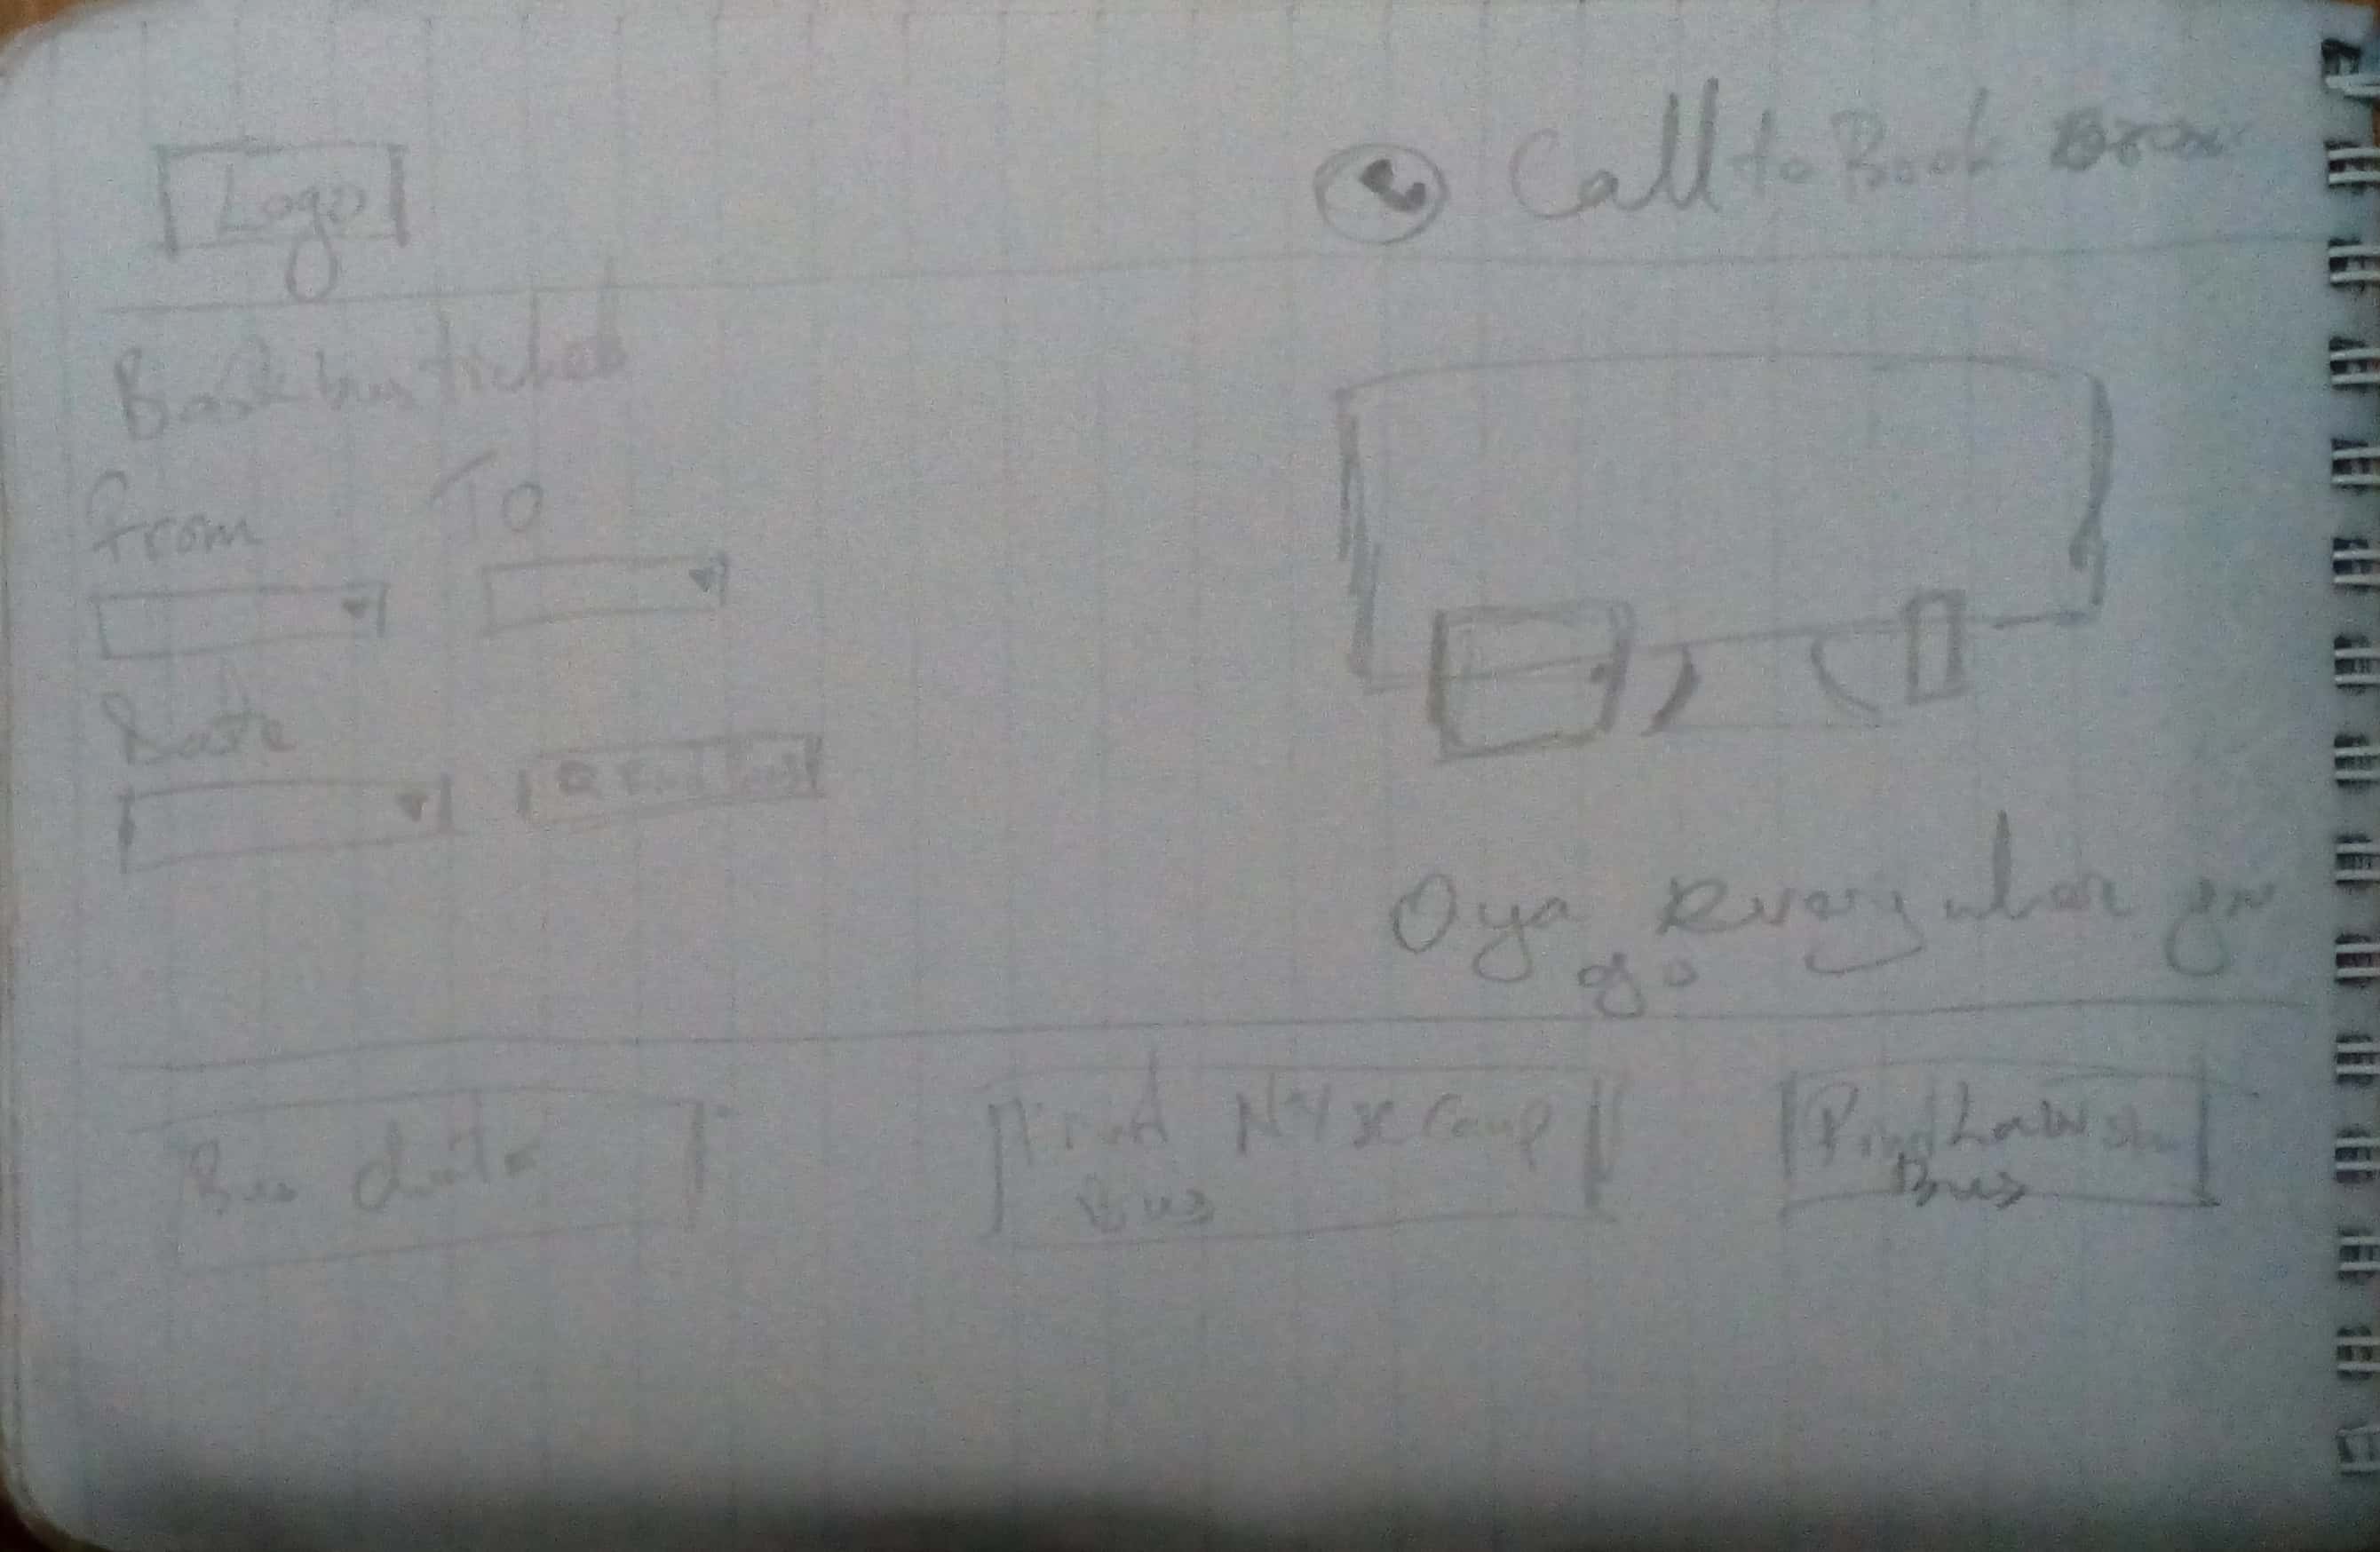 Logo
Call to Book
Book bus ticket
From
To
Date
Find bus
Oya everywhere you
go
Bus
Find Nysc Camp
Bus
Find
Bus